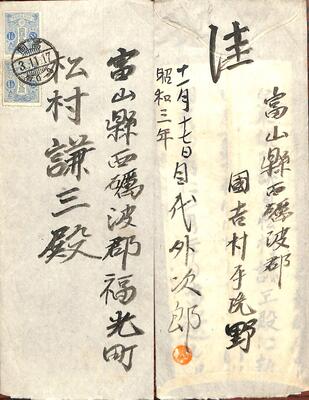 富山縣西礪波郡福光町
松村謙三殿
3.11.17
富山縣西礪波郡
國吉村手洗野
目代外次郎
十一月十七日
昭和三年